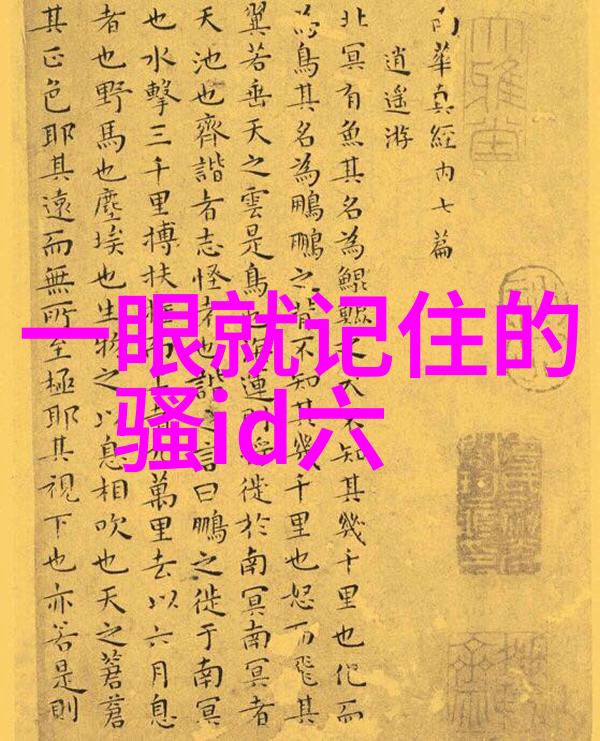 一眼就记住的
骚id六
南華真經内七篇
逍遥游
北冥有魚其名為鯤鯤之大不知其幾千里也化而
為鳥其名為鵬鵬之背不知其幾千里也怒而飛其
翼若垂天之雲是鳥也海運則將徙於南冥南冥者
天池也齊諧者志怪者也諧之言曰鵬之徙于南冥
也水擊三千里搏扶搖而上者九萬里去以六月息
者也野馬也塵埃也生物之以息相吹也天之蒼蒼
其正色耶其遠而無所至極耶其視下也亦若是則
大雅堂